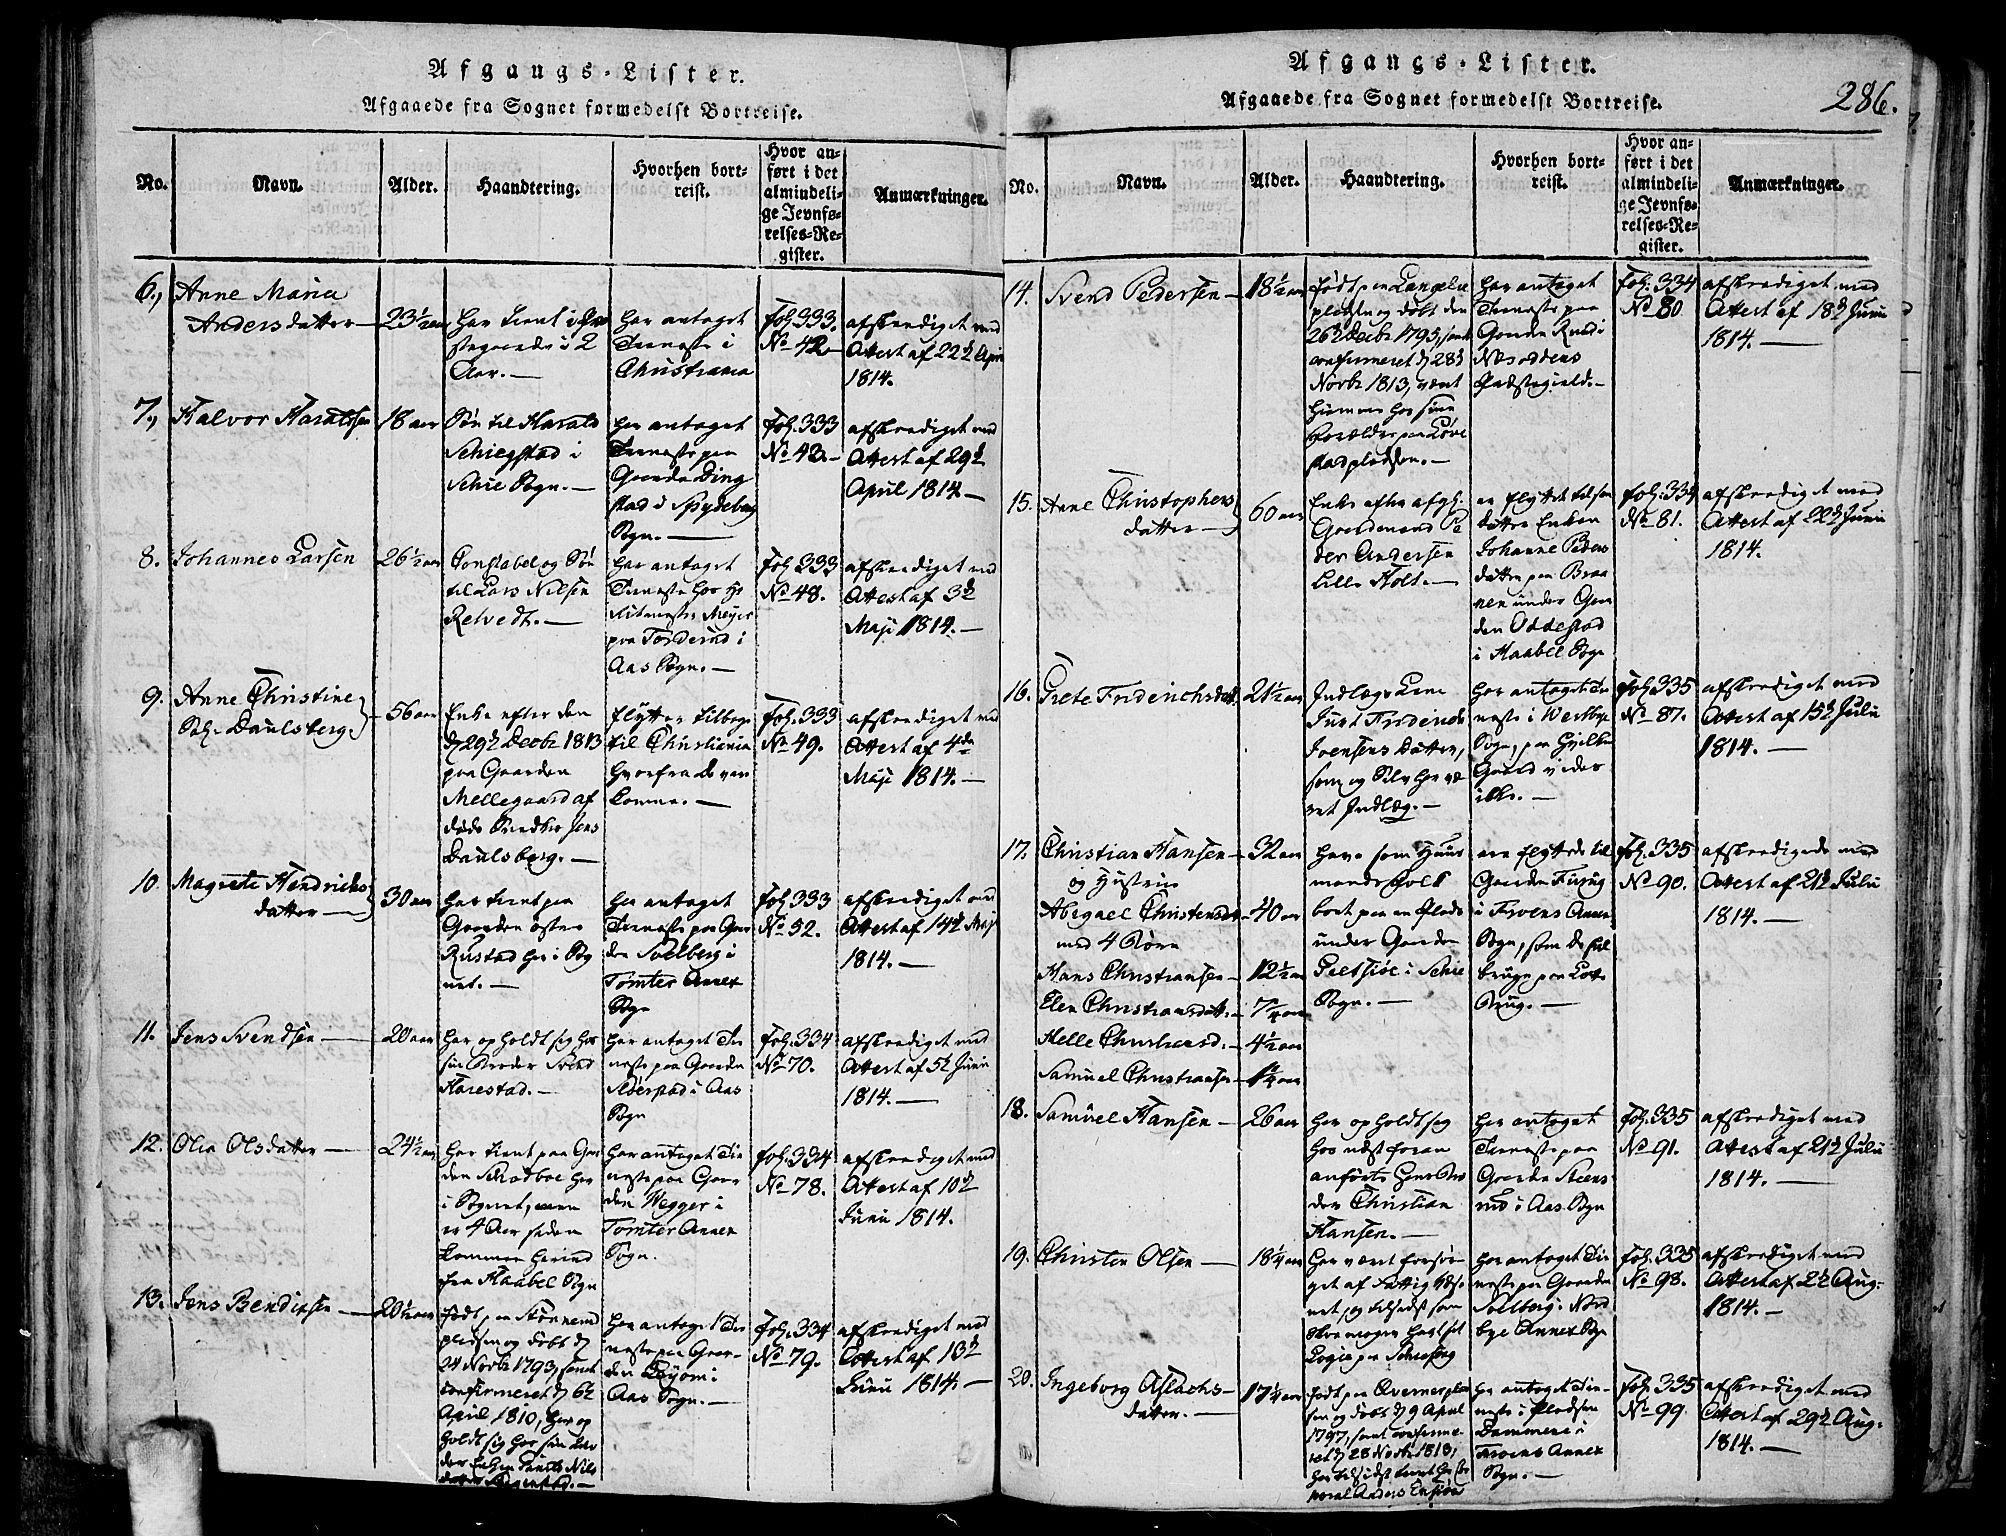 Afgangs-Lister.
Afgaaede fra Sognet formedelst Bortreise.
No.
Navn.
Alder.
Haandtering.
Hvorhen bort-
reist.
Hvor an-
ført i det
almindeli-
ge Jevnfø-
relses-Re-
gister.
Anmærkninger.
6.,
Anne Maria
Andersdatter
23½ aar
har tient i
i 2
Aar.
har antaget
Tieneste i
Christiania
Fol. 333.
No 42
afskediget med
Attest af 22de April
1814.
7.,
Halvor Haraldsen
18 aar
Søn til Harald
Schiegstad i
Schie Sogn.
har antaget
Tieneste paa
Gaarden Ding
stad i Spydeberg
Sogn.
Fol. 333
No 43.
afskediget med
Attest af 29de
April 1814
8.
Johannes Larsen
26½ aar
Constabel og Søn
til Lars Nilsen
Retvedt.
har antaget
Tieneste hos Hr
Ritmester Meyer
paa Forderud i
Aas Sogn.
Fol. 333
No 48.
afskediget med
Attest af 3de
Maji 1814.
9.
Anne Christine
Sal. Paulsberg.
56 aar
Enke efter den
d 29de Decbr 1813
paa Gaarden
Mellegaard af
døde Snedker Jens
Paulsberg.
flytter tilbage
til Christiania
hvorfra de var
komne.
Fol. 333
No 49.
afskediget med
Attest af 4de
Maji 1814.
10.
Magrete Hendrichs
datter
30 aar
har tient paa
Gaarden østre
Rustad her i Sog
net.
har antaget
Tieneste paa Gaar
den Solberg i
Tomter Annex
Sogn
Fol. 333
No 52.
afskediget med
Attest af 14de Maji
1814.
11.
Jens Svendsen
20 aar
har opholdt sig hos
sin Broder Svend
Harestad.
har antaget Tie
neste paa Gaarden
i Aas
Sogn
Fol. 334
No 70.
afskediget med
Attest af 5te Junii
1814.
12.
Olia Olsdatter
24½ aar
har tient paa Gaar
den Skodboe her
i Sognet, men
er 4 Aar siden
kommen herind
fra Haabøl Sogn
har antaget Tie
neste paa Gaar
den Wegger i
Tomter Annex
Sogn.
Fol. 334
No 78.
afskediget med
Attest af 10de
Junii 1814.
13.
Jens Bendixsen
20½ aar
født paa
pladsen og døbt d
24 Novbr 1793, samt
confirmeret d 6te
April 1810, har op
holdt sig hos sin Mo
der Enken Nils
datter
har antaget Tie
neste paa Gaar-
den i
Aas Sogn.
Fol. 334
No 79.
afskediget med
Attest af 13de
Junii 1814.
Afgangs-Lister.
Afgaaede fra Sognet formedelst Bortreise.
286.
No.
Navn.
Alder.
Haandtering.
Hvorhen bort-
reist.
Hvor an-
ført i det
almindeli-
ge Jevnfø-
relses-Re-
gister.
Anmærkninger.
14.
Svend Pedersen
18½ aar
født paa
pladsen og døbt den
26de Decbr 1795, samt
confirmeret d 28de
Novbr 1813, været
hiemme hos sine
Forældre paa
stadpladsen.
har antaget
Tieneste paa
Gaarden Rud i
Næsoddens
Præstegield.
Fol. 334
No 80
afskediget med
Attest af 18de Junii
1814.
15.
Anne Christophers
datter
60 aar
Enke efter afg.
Gaardmand Pe
der Andersen
Lille Holt.
er flyttet til sin
datter Enken
Johanne Peders
datter paa Braa
ten under Gaar
den Oddestad
i Haabøl Sogn
Fol. 334
No 81.
afskediget med
Attest af 22de Junii
1814.
16.
Grete Friderichsdatt.
21½ aar
Indlægs Lem
Friderich
Joensens datter,
som og selv har væ
ret Indlæg.
har antaget Tie
neste i Westbye
Sogn, paa
Gaard vides
ikke.
Fol. 335
No 87.
afskediget med
Attest af 15de Julii
1814.
17.
Christian Hansen
og Hustrue
Abigael Christensd.
med 4 Børn
Hans Christiansen
Elen Christiansdatter
Helle Christiansd.
Samuel Christiansen
32 aar
40 aar
12½ aar
7¼ aar
4½ aar
1¼ aar
have som Huus
mandsfolk
boet paa en Plads
under Gaarden
i Schie
Sogn.
ere flyttede til
Gaarden
i Froens Annex
Sogn, som de skal
bruge paa
Brug.
Fol. 335
No 90.
afskedigede med
Attest af 21de Julii
1814.
18.
Samuel Hansen
26 aar
har opholdt sig
hos næst foran
anførte hans Bro
der Christian
Hansen.
har antaget
Tieneste paa
Gaarden Steens
rud i Aas Sogn
Fol. 335
No 91.
afskediget med
Attest af 21de Julii
1814.
19.
Christen Olsen
18¼ aar
har været forsør
get af Fattig Væse
net, og tilsidst som
Skomager havt sit
Logie paa
har antaget Tie
neste paa Gaarden
Solberg i Nord
bye Annex Sogn
Fol. 335
No 98.
afskediget med
Attest af 2de Aug:
1814.
20.
Ingeborg Aslachs-
datter.
17¼ aar
født paa
sen og døbt d 9 April
1797, samt confirme
ret d 28 Novbr 1813,
har tilsidst tient hos Cor
poral Anders
har antaget Tie-
neste i Pladsen
Dammene i
Froens Annex
Sogn.
Fol. 335
No 99.
afskediget med
Attest af 29de Aug:
1814.